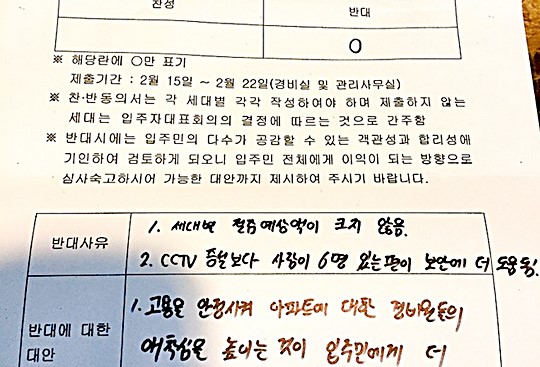 찬성 반대
O
※ 해당란에 O만 표기
제출기간 : 2월 15일 ~ 2월 22일(경비실 및 관리사무실)
※ 찬·반동의서는 각 세대별 각각 작성하여야 하며 제출하지 않는
세대는 입주자대표회의의 결정에 따르는 것으로 간주함
※ 반대시에는 입주민의 다수가 공감할 수 있는 객관성과 합리성에
기인하여 검토하게 되오니 입주민 전체에게 이익이 되는 방향으로
심사숙고하시어 가능한 대안까지 제시하여 주시기 바랍니다.
반대사유
1. 세대별 절감예상액이 크지 않음.
2. CCTV 증설보다 사람이 6명 있는편이 보안에 더 도움됨!
반대에 대한
대안
1. 고용을 안정시켜 아파트에 대한 경비원들의
애착심을 높이는 것이 입주민에게 더